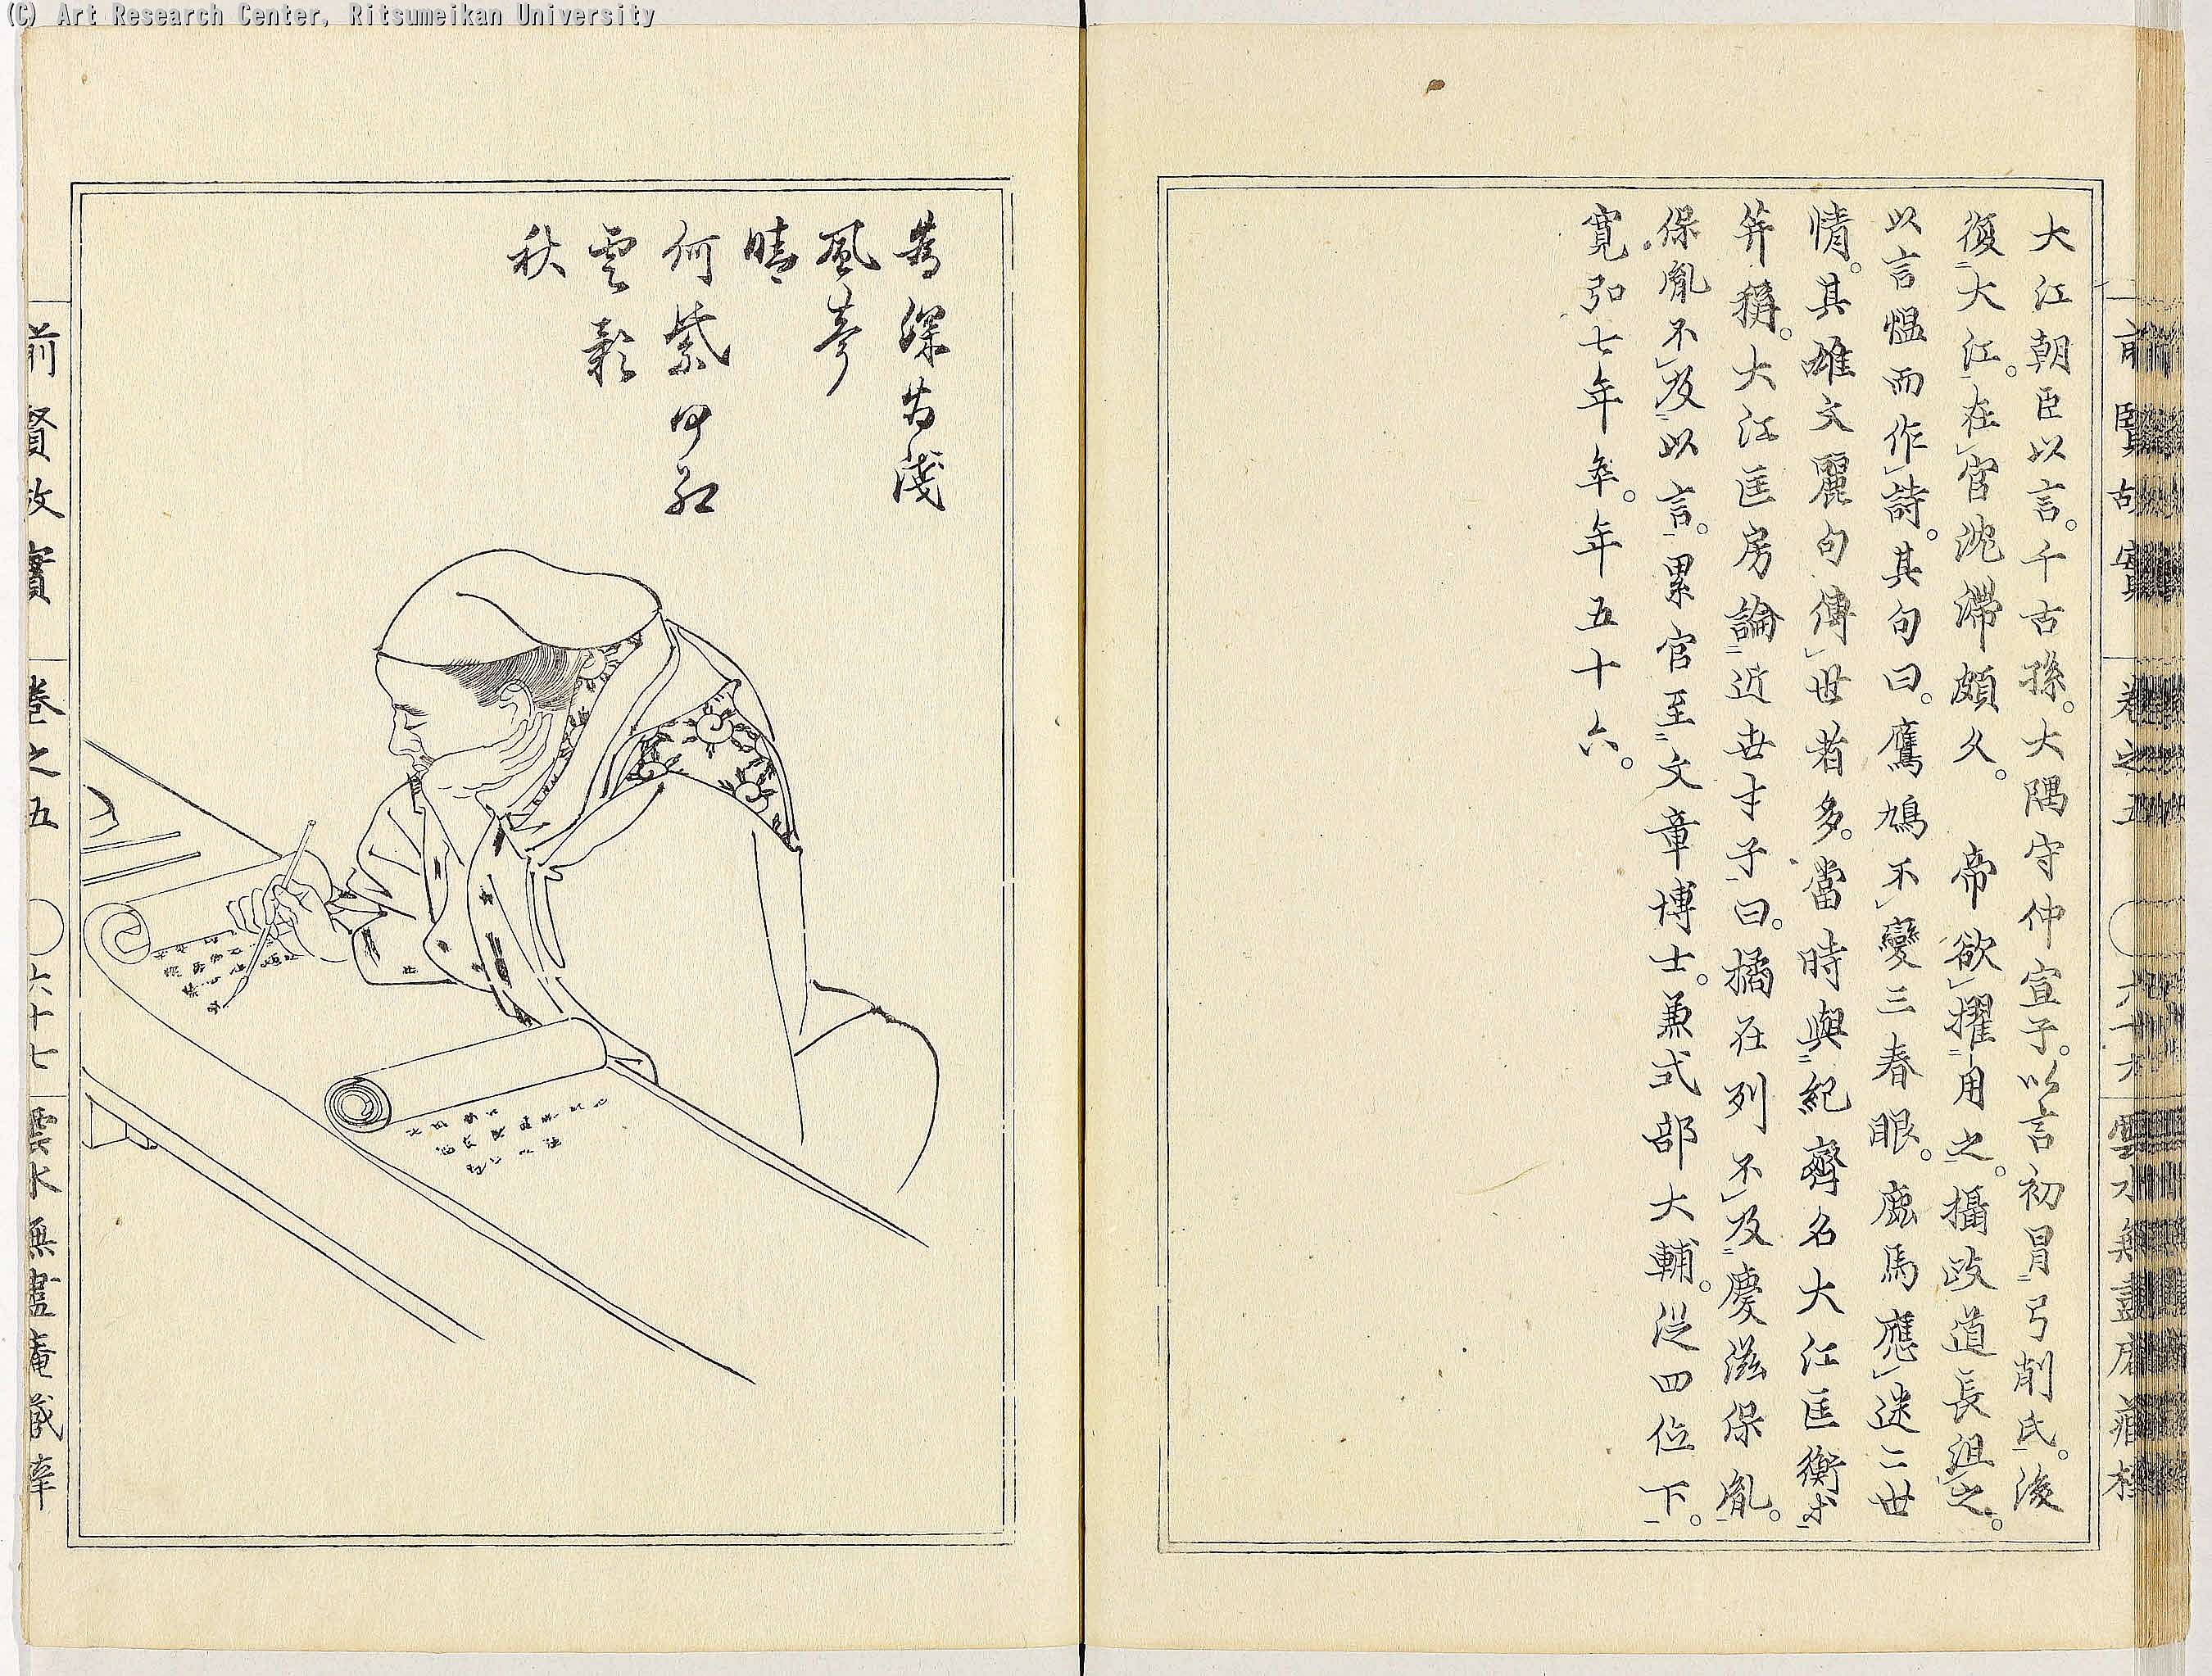 (C) Art Research Center, Ritsumeikan University
大江朝臣以言。千古孫。大隅守仲宣子。以言初冐弓削氏。後
復大江。在官沈滯頗久。 帝欲擢用之。攝政道長沮之。
以言愠而作詩。其句曰。鷹鳩不變三春眼。鹿馬應迷二世
情。其雄文麗句傳世者多。當時與紀齊名大江匡衡等
竝稱。大江匡房論近世才子曰。橘在列不及慶滋保胤。
保胤不及以言。累官至文章博士。兼式部大輔。從四位下。
寛弘七年卒。年五十六。
為深為淺
風
晴
何紫何紅
雲影
秋
前賢故實 卷之五 六十七 雲水無盡庵藏梓
前賢故實 卷之五